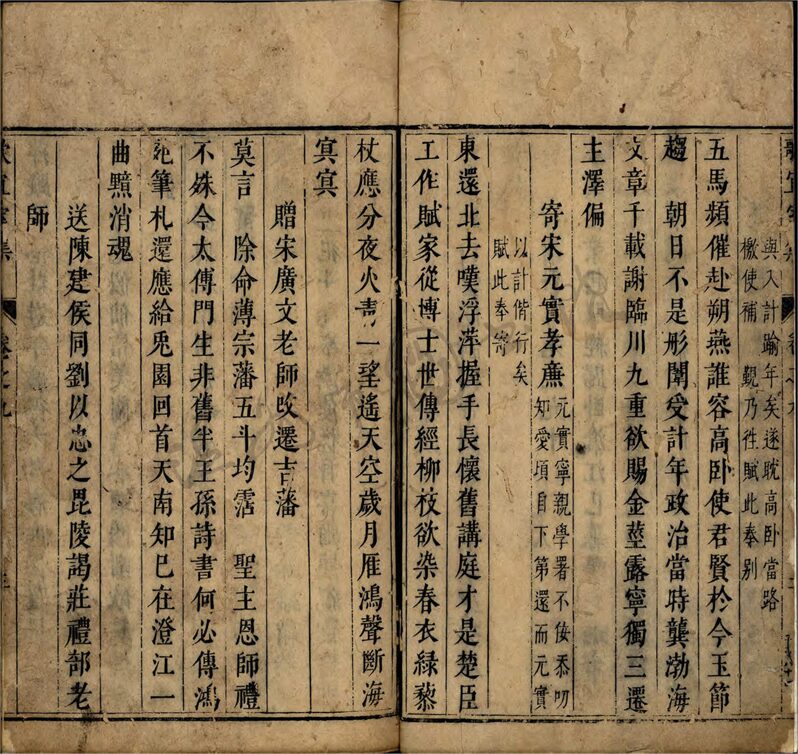 與入計踰年矣遂耽高卧當路
檄使補 覲乃徃賦此奉别
五馬頻催赴朔燕誰容高卧使君賢於今玉節
趨 朝日不是彤闈受計年政治當時龔渤海
文章千載謝臨川九重欲賜金莖露寧獨三遷
主澤偏
寄宋元實孝廉
元實寧親學署不佞忝叨
知愛頃自下第還而元實
以計偕行矣
賦此奉寄
東還北去嘆浮萍握手長懷舊講庭才是楚臣
工作賦家從博士世傳經柳枝欲染春衣緑藜
杖應分夜火青一望遙天空歲月雁鴻聲斷海
冥冥
贈宋廣文老師改遷吉藩
莫言 除命薄宗藩五斗均霑 聖主恩師禮
不殊今太傅門生非舊半王孫詩書何必傳鴻
筆札還應給兎園回首天南知巳在澄江一
曲黯消魂
送陳建侯同劉以忠之毘陵謁莊禮部老
師